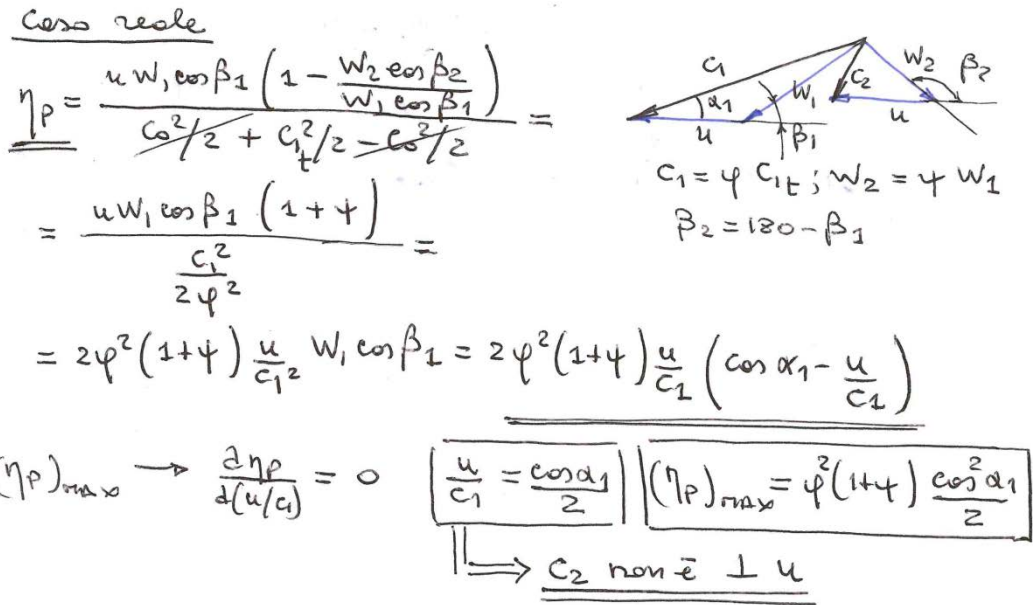 Caso reale
η_P = u W₁ cos β₁ (1 − W₂ cos β₂ / W₁ cos β₁) / (C₀²/2 + C₁t²/2 − C₀²/2) =
C₁ α₁ W₁ C₂ W₂ β₂
u β₁ u
C₁ = φ C₁t ; W₂ = ψ W₁
β₂ = 180 − β₁
= u W₁ cos β₁ (1 + ψ) / (C₁² / 2φ²) =
= 2φ² (1+ψ) u/C₁² W₁ cos β₁ = 2φ² (1+ψ) u/C₁ (cos α₁ − u/C₁)
(η_P)max → ∂η_P / ∂(u/C₁) = 0 u/C₁ = cos α₁ / 2 (η_P)MAX = φ² (1+ψ) cos² α₁ / 2
⇒ C₂ non è ⊥ u